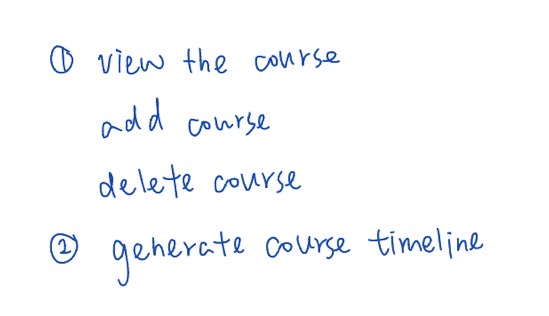 ① view the course
add course
delete course
② generate course timeline